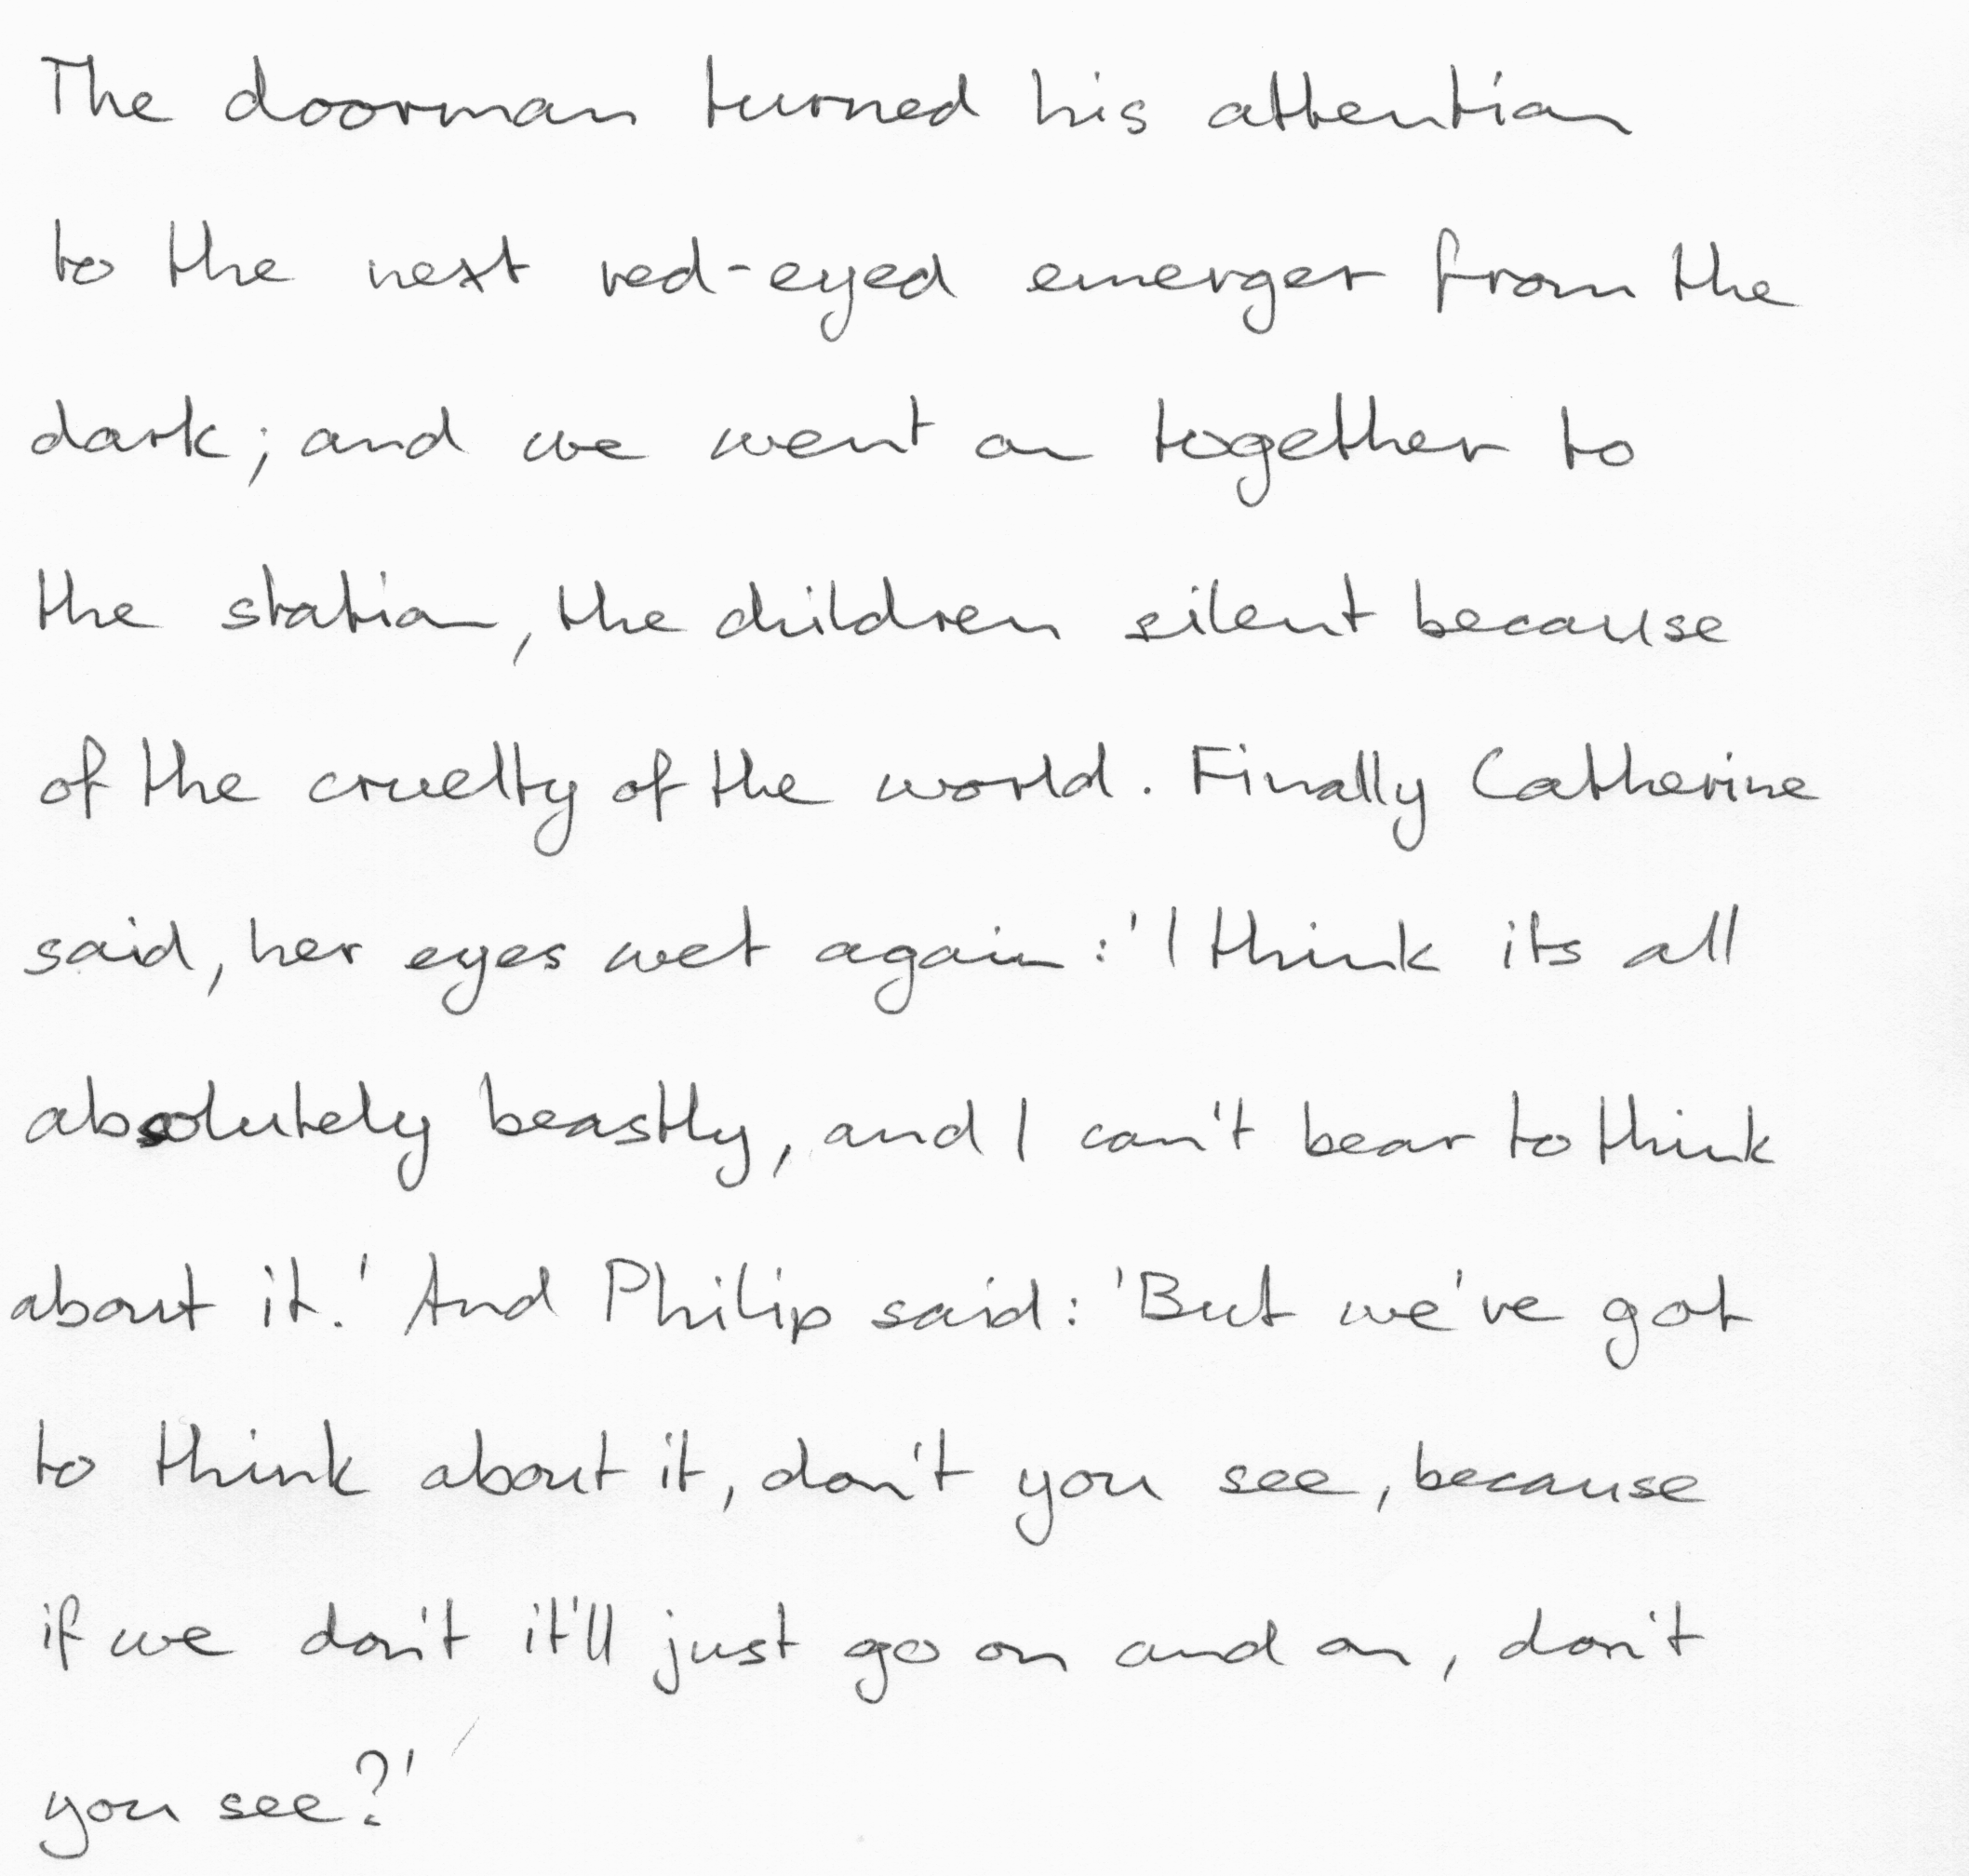 The doorman turned his attention
to the next red-eyed emerger from the
dark; and we went on together to
the station, the children silent because
of the cruelty of the world. Finally Catherine
said, her eyes wet again: 'I think its all
absolutely beastly, and I can't bear to think
about it.' And Philip said: 'But we've got
to think about it, don't you see, because
if we don't it'll just go on and on, don't
you see?'